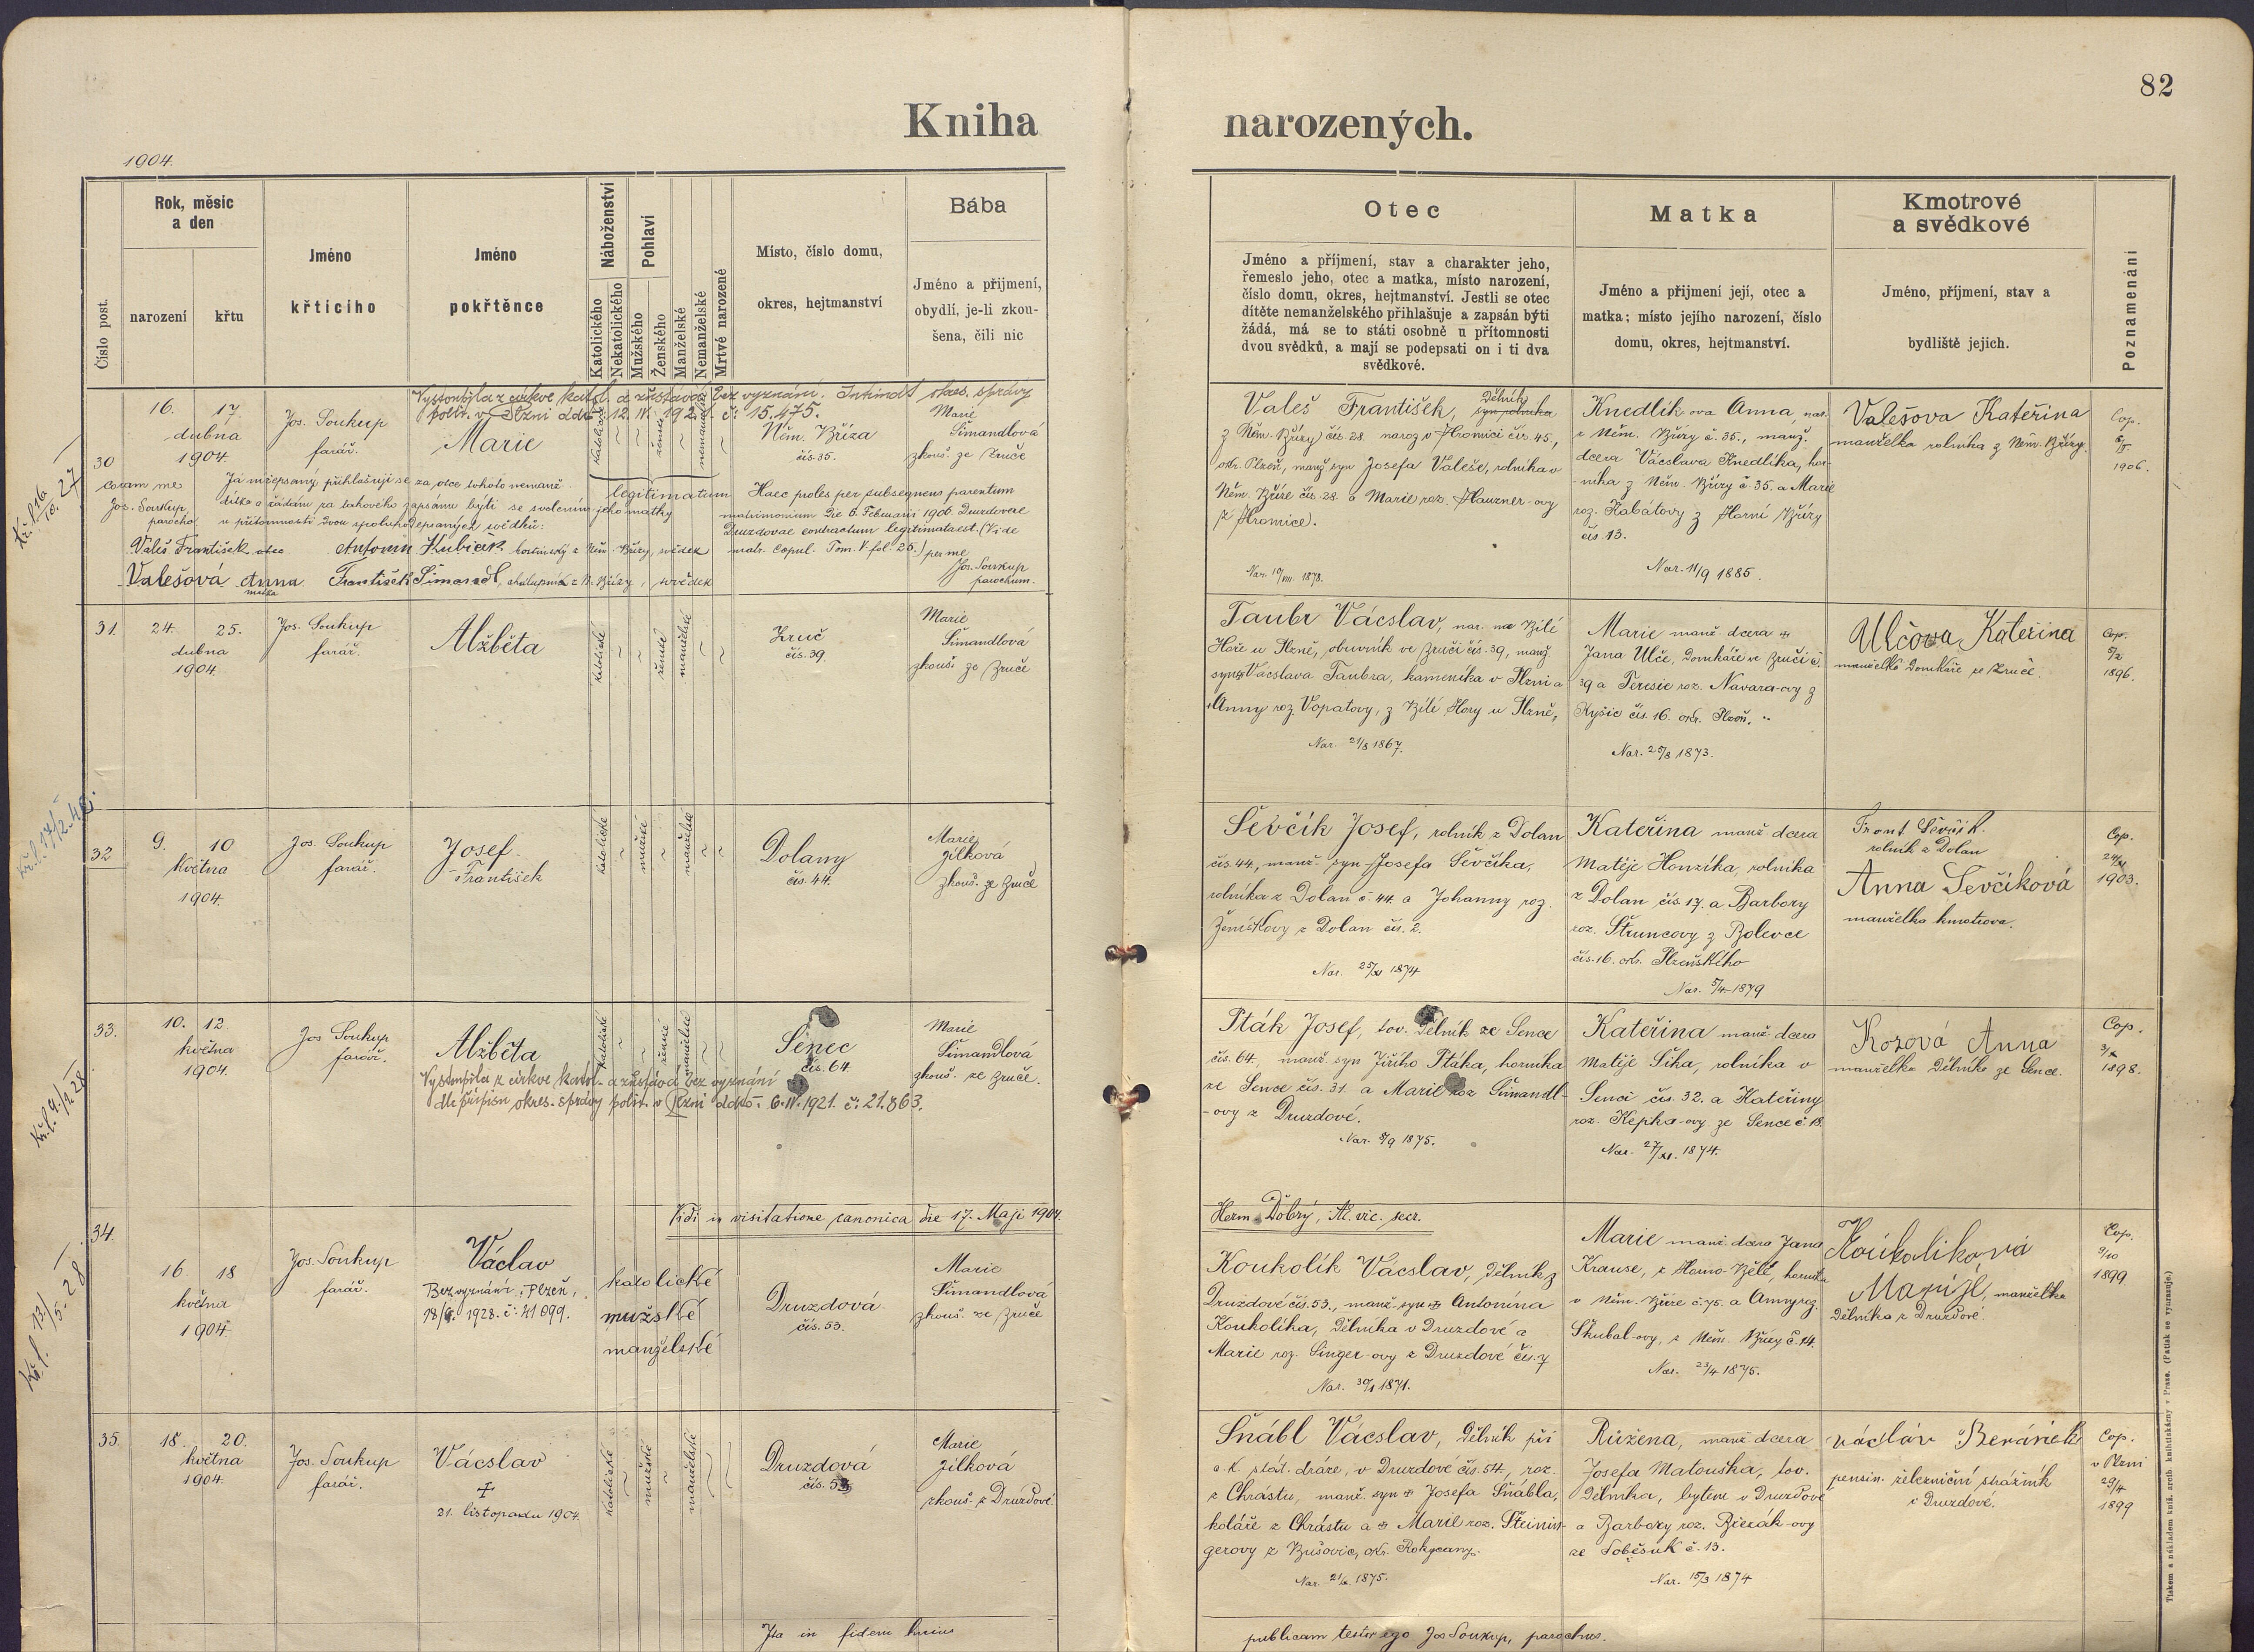 82
Kniha narozených.
1904.
Číslo post.
Rok, měsíc
a den
narození
křtu
Jméno
křtícího
Jméno
pokřtěnce
Náboženství
Katolického
Nekatolického
Pohlaví
Mužského
Ženského
Manželské
Nemanželské
Mrtvé narozené
Místo, číslo domu,
okres, hejtmanství
Bába
Jméno a přijmení,
obydlí, je-li zkou-
šena, čili nic
Otec
Jméno a příjmení, stav a charakter jeho,
řemeslo jeho, otec a matka, místo narození,
číslo domu, okres, hejtmanství. Jestli se otec
dítěte nemanželského přihlašuje a zapsán býti
žádá, má se to státi osobně u přítomnosti
dvou svědků, a mají se podepsati on i ti dva
svědkové.
Matka
Jméno a přijmení její, otec a
matka; místo jejího narození, číslo
domu, okres, hejtmanství.
Kmotrové
a svědkové
Jméno, příjmení, stav a
bydliště jejich.
Poznamenání
Vystoupila z církve katol. a zůstává bez vyznání. Intimát okres. správy
polit. v Plzni ddto 12. IV. 1921. č: 15.475.
30
16. 17.
dubna
1904
Jos. Soukup
farář.
Marie
katolické
ženské
nemanželské
Něm. Bříza
čís. 35.
Marie
Šimandlová
zkouš. ze Zruče
coram me
Jos. Soukup
parocho
Já nížepsaný přihlašuji se za otce tohoto nemanž.
dítka a žádám za takového zapsánu býti se svolením jeho matky
u přítomnosti dvou spolupodepsaných svědků:
Valeš František otec
Antonín Kubíček hostinský z Něm. Břízy, svědek
Valešová Anna
matka
František Šimandl, chalupník z N. Břízy, svědek
legitimatum
Haec proles per subsequens parentum
matrimonium die 6. Februarii 1906 Druzdovae
Druzdovae contractum legitimata est. (Vide
matr. Copul. Tom. V. fol 25.) per me
Jos. Soukup
parochum.
Valeš František, dělník
syn rolníka
z Něm. Břízy čís. 28. naroz v Hromici čís. 45,
okr. Plzeň, manž syn Josefa Valeše, rolníka v
Něm. Bříze čís. 28. a Marie roz. Hauzner-ovy
(z Hromice).
Nar. 10/VIII. 1878.
Knedlík ova Anna, nar.
z Něm. Břízy č. 35., manž.
dcera Vácslava Knedlíka, hor-
-níka z Něm. Břízy č. 35. a Marie
roz. Kabátovy z Horní Břízy
čís 13.
Nar. 11/9 1885.
Valešova Kateřina
manželka rolníka z Něm. Břízy.
Cop.
6/II.
1906.
31.
24. 25.
dubna
1904.
Jos. Soukup
farář.
Alžběta
katolické
ženské
manželské
Zruč
čís. 39.
Marie
Šimandlova
zkouš. ze Zruče
Taubr Vácslav, nar. na Bílé
Hoře u Plzně, obuvník ve Zruči čís. 39, manž
syn Vácslava Taubra, kameníka v Plzni a
Anny roz. Vopatovy, z Bílé Hory u Plzně,
Nar. 21/8 1867.
Marie manž. dcera
Jana Ulče, domkáře ve Zruči č.
39 a Terezie roz. Navara-ovy z
Kyšic čís. 16. okr. Plzeň.
Nar. 25/8 1873.
Ulčova Kateřina
manželka domkáře ze Zruče.
Cop.
5/2
1896.
32
9. 10
května
1904.
Jos. Soukup
farář.
Josef
František
katolické
mužské
manželské
Dolany
čís. 44.
Marie
Jílková
zkouš. ze Zruče
Ševčík Josef, rolník z Dolan
čís. 44, manž. syn Josefa Ševčíka,
rolníka z Dolan č. 44. a Johanny roz.
Ženíškovy z Dolan čís. 2.
Nar. 25/XI 1874
Kateřina manž dcera
Matěje Honzíka, rolníka
z Dolan čís. 17. a Barbory
roz. Štruncovy z Bolevce
čís. 16. okr. Plzeňského
Nar. 5/4 1879
Frant Ševčík.
rolník z Dolan
Anna Ševčíková
manželka kmotrova.
Cop.
24/XI
1903.
33.
10. 12.
května
1904.
Jos Soukup
farář.
Alžběta
Vystoupila z církve katol. a zůstává bez vyznání
dle přípisu okres. správy polit. v Plzni ddto. 6. IV. 1921. č: 21.863.
katolické
ženské
manželské
Senec
čís. 64
Marie
Šimandlová
zkouš. ze Zruče.
Pták Josef, tov. dělník ze Sence
čís. 64, manž syn Jiřího Ptáka, horníka
ze Sence čís. 31. a Marie roz Šimandl-
-ovy z Druzdové.
Nar. 8/9 1875.
Kateřina manž dcera
Matěje Síka, rolníka v
Senci čís. 32. a Kateřiny
roz. Kepka-ovy ze Sence č. 18.
Nar. 27/XI. 1874.
Kozová Anna
manželka dělníka ze Sence.
Cop.
3/X
1898.
Vidi in visitatione canonica die 17. Maji 1904.
Herm. Dobrý, A. vic. secr.
34.
16 18
května
1904.
Jos. Soukup
farář.
Václav
Bez vyznání. Plzeň,
18/6. 1928. č: 41 099.
katolické
mužské
manželské
Druzdová
čís. 53.
Marie
Šimandlová
zkouš. ze Zruče
Koukolík Vácslav, dělník z
Druzdové čís. 53., manž. syn Antonína
Koukolíka, dělníka v Druzdové a
Marie roz. Singer-ovy z Druzdové čís. 7
Nar. 30/1 1871.
Marie manž. dcera Jana
Krause, z Horno-Bělé, horníka
v Něm. Bříze č. 75. a Anny roz.
Škubal-ovy, z Něm. Břízy č. 14.
Nar. 23/4 1875.
Koukolíková
Marije, manželka
dělníka z Druzdové.
Cop.
9/10
1899
35
18. 20.
května
1904.
Jos. Soukup
farář.
Vácslav
21. listopadu 1904.
katolické
mužské
manželské
Druzdová
Marie
Jílková
zkouš. z Druzdové
Šnábl Vácslav, dělník při
c. k. stát. dráze, v Druzdové čís. 54., roz.
z Chrástu, manž. syn Josefa Šnábla,
koláře z Chrástu a Marie roz. Šteinin-
gerovy z Bušovic, okr. Rokycany.
Růžena, manž dcera
Josefa Matouška, tov.
dělníka, bytem v Druzdové
a Barbory roz. Bierák-ovy
ze Soběsuk č. 13.
Nar. 15/3 1874
Václav Beránek
pensin. železniční strážník
z Druzdové.
Cop.
v Plzni
29/4
1899
Ita in fidem hujus publicam testor ego Jos Soukup, parochus.